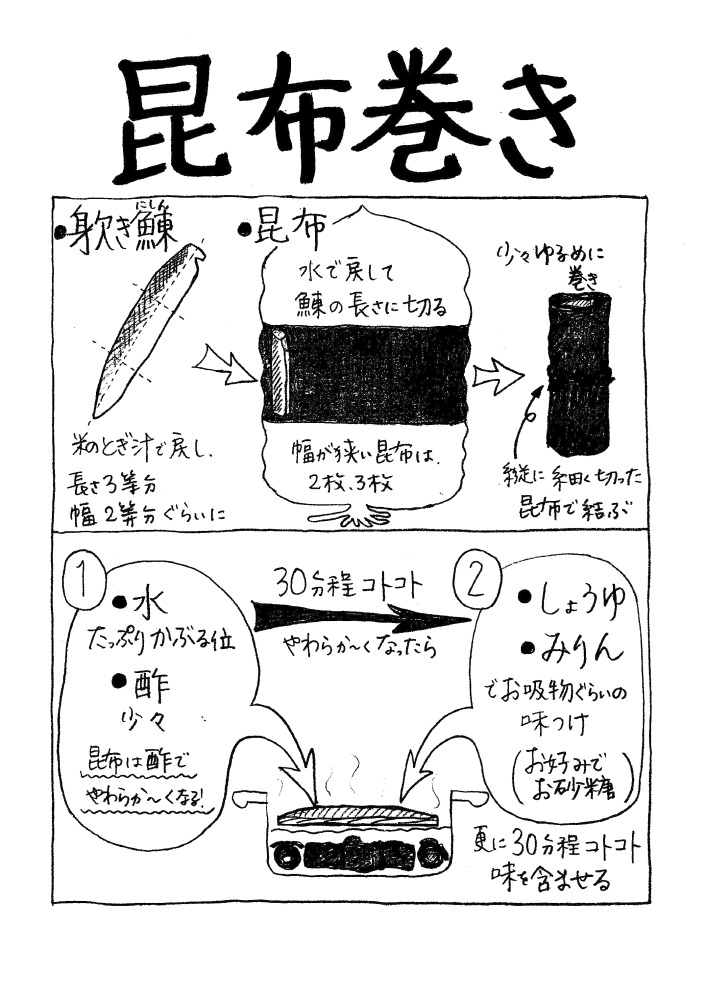 昆布巻き
●身欠き鰊
にしん
米のとぎ汁で戻し、
長さ3等分
幅2等分ぐらいに
●昆布
水で戻して
鰊の長さに切る
幅が狭い昆布は、
2枚、3枚
少々ゆるめに
巻き
縦に細く切った
昆布で結ぶ
1
●水
たっぷりかぶる位
●酢
少々
昆布は酢で
やわらか〜くなる!
30分程コトコト
やわらか〜くなったら
2
●しょうゆ
●みりん
でお吸物ぐらいの
味つけ
(お好みで
お砂糖)
更に30分程コトコト
味を含ませる